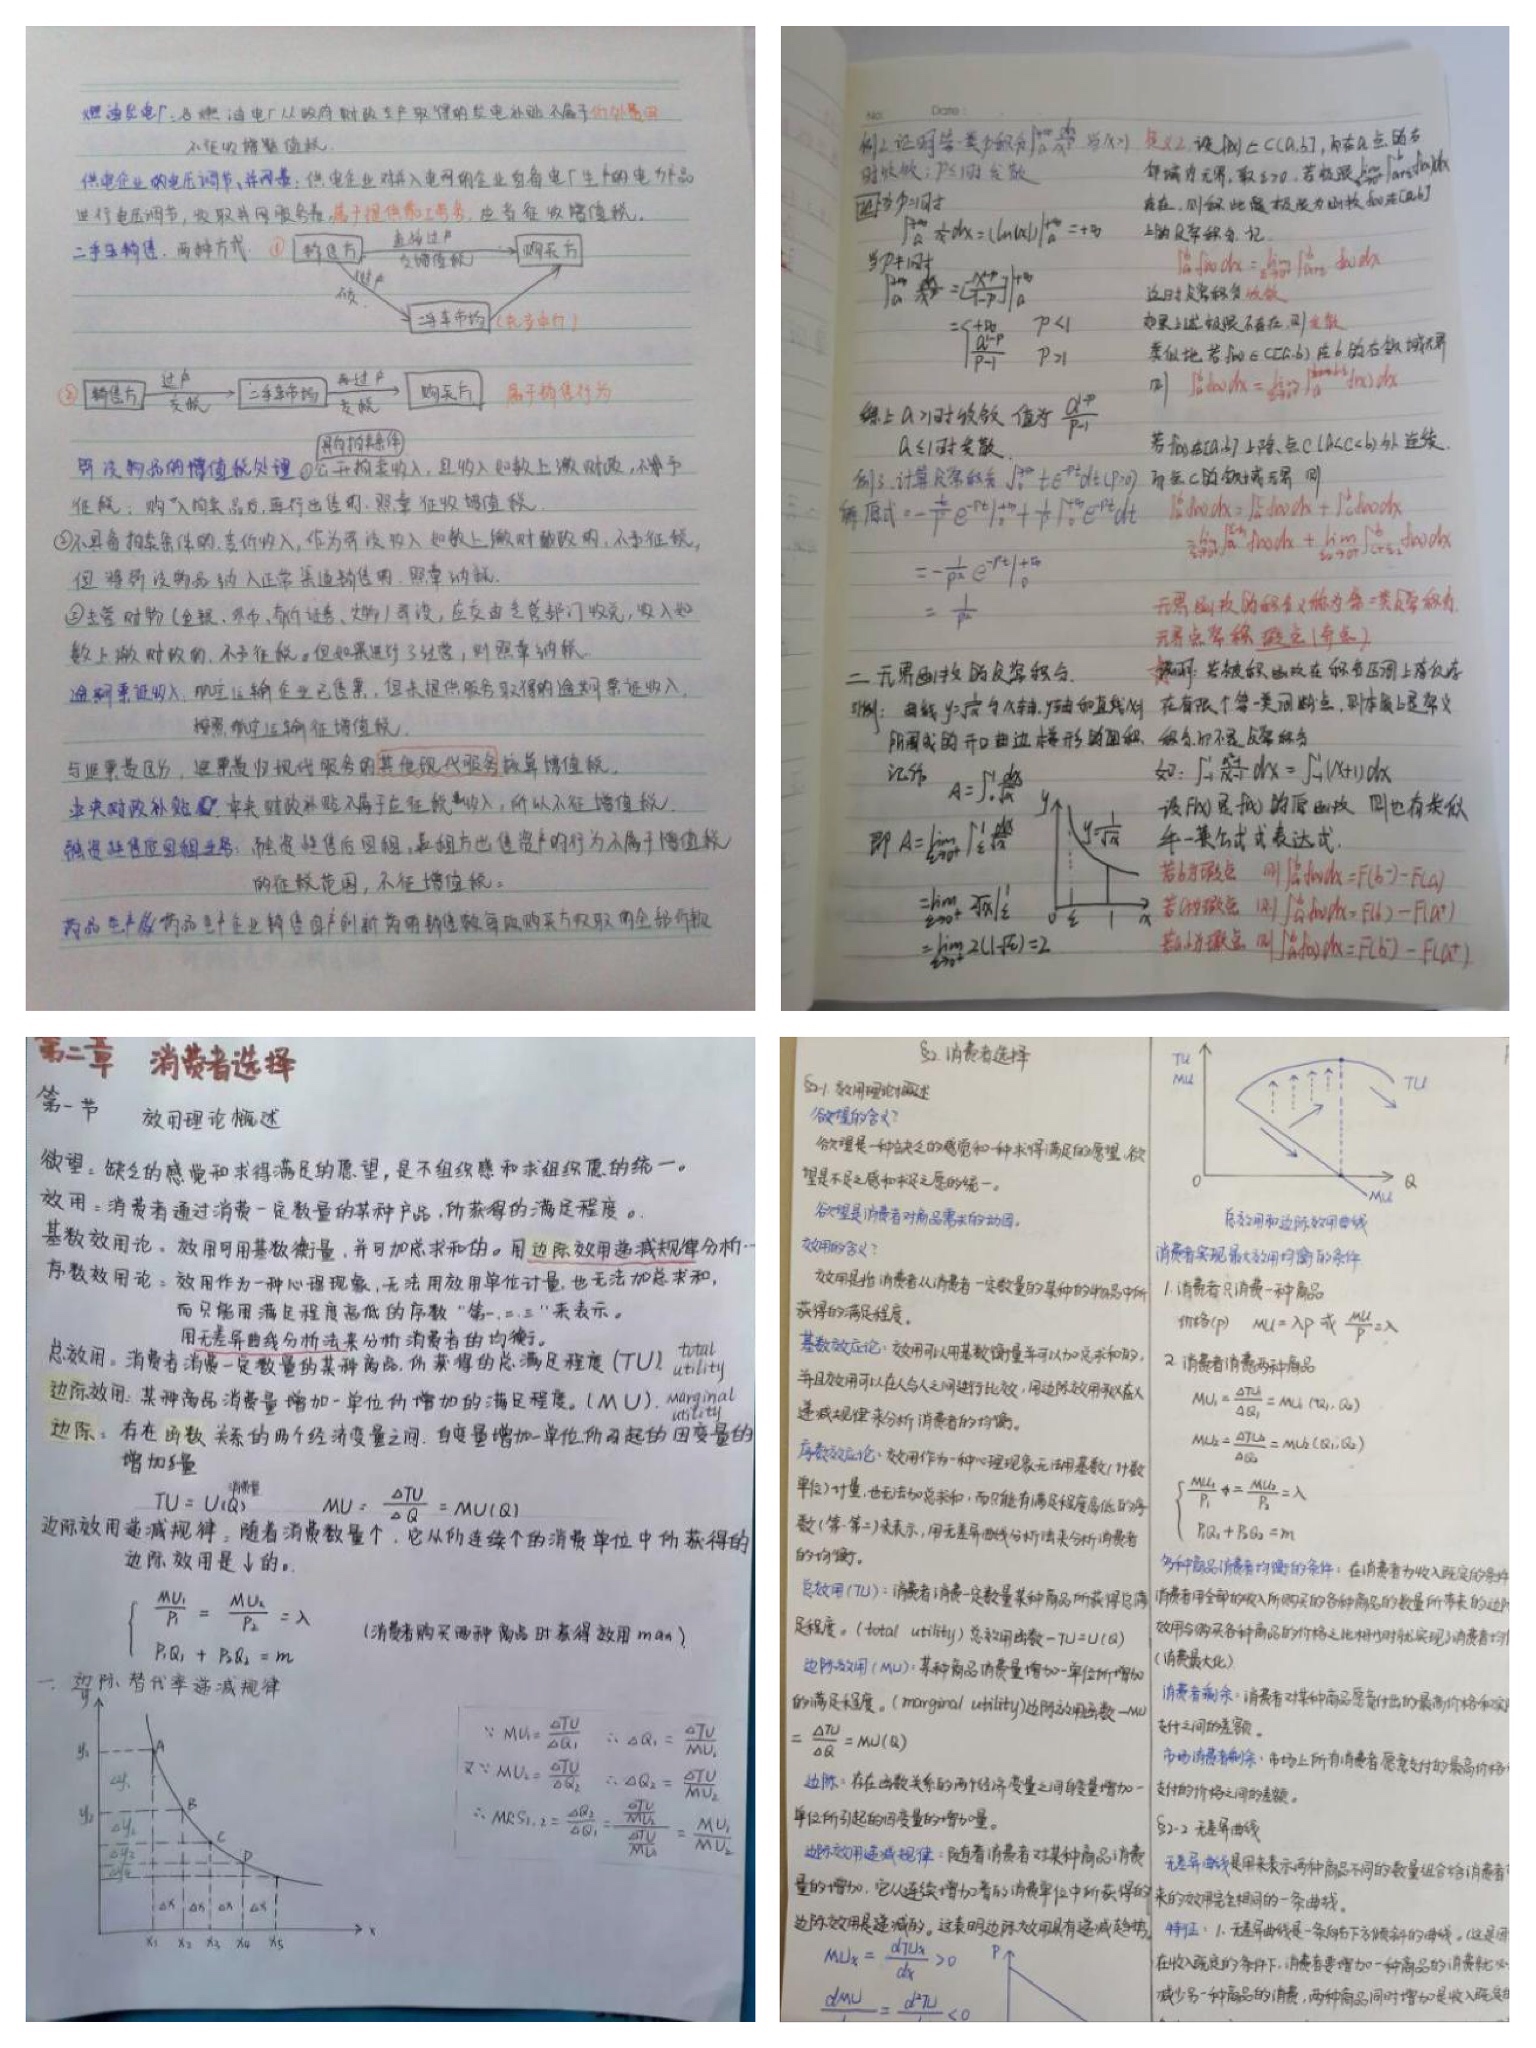 燃油发电厂：各燃油电厂从政府财政专户取得的发电补贴不属于价外费用
不征收增值税.
供电企业的电压调节、并网费：供电企业对并入电网的企业自备电厂生产的电力产品
进行电压调节，收取并网服务费，属于提供加工劳务，应当征收增值税.
二手车销售. 两种方式. ① 销售方 直接过户 交增值税 购买方
过户
二手车市场
② 销售方 过户 交税 二手车市场 再过户 交税 购买方 属于销售行为
具备拍卖条件
罚没物品的增值税处理 ①公开拍卖收入，且收入如数上缴财政，不予
征税；购入拍卖品后，再行出售的. 照章征收增值税.
②不具备拍卖条件的. 变价收入，作为罚没收入如数上缴财政的，不予征税，
但将罚没物品纳入正常渠道销售的. 照章纳税.
③主管财物（金银、外币、有价证券、文物）罚没，应交由主管部门收兑，收入如
数上缴财政的，不予征税。但如果进行了经营，则照章纳税.
逾期票证收入. 航空运输企业已售票，但未提供服务取得的逾期票证收入，
按照航空运输征增值税.
与退票费区分，退票费归现代服务的其他现代服务核算增值税.
中央财政补贴 中央财政补贴不属于应征税收入，所以不征增值税.
融资性售后回租业务：融资性售后回租，承租方出售资产的行为不属于增值税
的征税范围，不征增值税。
药品生产 药品生产企业销售自产创新药的销售额为向购买方收取的全部价款
No. Date:
例2.证明第一类p积分∫ₐ^{+∞} dx/x^p 当p>1
时收敛；P≤1时发散
证 当p=1时
∫ₐ^{+∞} 1/x dx=(ln|x|)|ₐ^{+∞}=+∞
当P≠1时
∫ₐ^{+∞} dx/x^p =[x^{1-p}/(1-p)]|ₐ^{+∞}
={+∞ P<1
a^{1-p}/(p-1) P>1
综上 a>1时收敛 值为 a^{1-p}/(p-1)
a≤1时发散.
例3.计算反常积分 ∫₀^{+∞} te^{-pt}dt(p>0)
解 原式=-t/p e^{-pt}|₀^{+∞}+1/p∫₀^{+∞}e^{-pt}dt
=-1/p² e^{-pt}|₀^{+∞}
=1/p²
二 无界函数的反常积分.
引例：曲线 y=1/√x 与x轴.y轴和直线x=1
所围成的开口曲边梯形的面积.
记作 A=∫₀¹ dx/√x
即 A=lim_{ε→0⁺}∫_ε¹ dx/√x
=lim_{ε→0⁺} 2√x|_ε¹
=lim_{ε→0⁺} 2(1-√ε)=2
y y=1/√x 0 ε 1 x
定义2.设f(x)∈C(a,b]，而在a点的右
邻域内无界，取ε>0. 若极限lim_{ε→0⁺}∫_{a+ε}^b f(x)dx
存在，则称此极限为函数f(x)在[a,b]
上的反常积分.记
∫ₐ^b f(x)dx=lim_{ε→0⁺}∫_{a+ε}^b f(x)dx
这时反常积分收敛
如果上述极限不存在，则发散
类似地若f(x)∈C[a,b)在b的右邻域无界
则 ∫ₐ^b f(x)dx=lim_{ε→0⁺}∫ₐ^{b-ε} f(x)dx
若f(x)在[a,b]上除点c(a<c<b)外连续.
而在c的邻域无界 则
∫ₐ^b f(x)dx=∫ₐ^c f(x)dx+∫_c^b f(x)dx
=lim_{ε₁→0⁺}∫ₐ^{c-ε₁} f(x)dx+lim_{ε₂→0⁺}∫_{c+ε₂}^b f(x)dx
无界函数的积分又称为第二类反常积分.
无界点常称瑕点(奇点)
说明：若被积函数在积分区间上存仅存
在有限个第一类间断点，则本质上是常义
积分,而不是反常积分
如：∫₋₁¹ (x²-1)/(x-1) dx=∫₋₁¹(x+1)dx
设F(x)是f(x)的原函数 则也有类似
牛-莱公式式表达式.
若b为瑕点 则∫ₐ^b f(x)dx=F(b⁻)-F(a)
若a为瑕点 则∫ₐ^b f(x)dx=F(b)-F(a⁺)
若a,b为瑕点 则∫ₐ^b f(x)dx=F(b⁻)-F(a⁺)
第二章 消费者选择
第一节 效用理论概述
欲望：缺乏的感觉和求得满足的愿望，是不组织感和求组织愿的统一。
效用：消费者通过消费一定数量的某种产品，所获得的满足程度。
基数效用论：效用可用基数衡量，并可加总求和的。用边际效用递减规律分析…
序数效用论：效用作为一种心理现象，无法用效用单位计量，也无法加总求和，
而只能用满足程度高低的序数“第一.二.三”来表示。
用无差异曲线分析法来分析消费者的均衡。
总效用：消费者消费一定数量的某种商品，所获得的总满足程度(TU). total utility
边际效用：某种商品消费量增加一单位所增加的满足程度。(MU). marginal utility
边际：存在函数关系的两个经济变量之间. 自变量增加一单位所引起的因变量的
增加量
消费量
TU=U(Q) MU=ΔTU/ΔQ=MU(Q)
边际效用递减规律：随着消费数量↑，它从所连续个的消费单位中所获得的
边际效用是↓的。
{MU₁/P₁=MU₂/P₂=λ
P₁Q₁+P₂Q₂=m
(消费者购买两种商品时获得效用max)
一. 边际替代率递减规律
y y₁ y₂ Δy₁ Δy₂ Δy₃ Δy₄ A B C D Δx Δx Δx Δx x₁ x₂ x₃ x₄ x₅ x
∵MU₁=ΔTU/ΔQ₁ ∴ΔQ₁=ΔTU/MU₁
又∵MU₂=ΔTU/ΔQ₂ ∴ΔQ₂=ΔTU/MU₂
∴MRS₁,₂=ΔQ₂/ΔQ₁=(ΔTU/MU₂)/(ΔTU/MU₁)=MU₁/MU₂
§2.消费者选择
§2-1.效用理论概述
欲望的含义？
欲望是一种缺乏的感觉和一种求得满足的愿望.欲
望是不足之感和求足之愿的统一。
欲望是消费者对商品需求的动因。
效用的含义？
效用是指消费者从消费者一定数量的某种的物品中所
获得的满足程度。
基数效应论：效用可以用基数衡量并可以加总求和的，
并且效用可以在人与人之间进行比较，用边际效用
递减规律来分析消费者的均衡。
序数效应论：效用作为一种心理现象无法用基数(计数
单位)计量，也无法加总求和，而只能有满足程度高低的序
数(第一第二)来表示，用无差异曲线分析法来分析消费者
的均衡。
总效用(TU)：消费者消费一定数量某种商品所获得总满
足程度。(total utility)总效用函数-TU=U(Q)
边际效用(MU)：某种商品消费量增加一单位所增加
的满足程度。(marginal utility)边际效用函数-MU
=ΔTU/ΔQ=MU(Q)
边际：存在函数关系的两个经济变量之间自变量增加一
单位所引起的因变量的增加量。
边际效用递减规律：随着消费者对某种商品消费
量的增加，它从连续增加着的消费单位中所获得的
边际效用是递减的。这表明边际效用具有递减趋势。
MUx=dTUx/dx>0
dMU/d =d²TU/ <0
P
TU MU TU 0 Q MU
总效用和边际效用曲线
消费者实现最大效用均衡的条件
1.消费者只消费一种商品
价格(p) MU=λP 或 MU/P=λ
2.消费者消费两种商品
MU₁=ΔTU/ΔQ₁=MU₁(Q₁,Q₂)
MU₂=ΔTU/ΔQ₂=MU₂(Q₁,Q₂)
{MU₁/P₁=MU₂/P₂=λ
P₁Q₁+P₂Q₂=m
多种商品消费者均衡的条件：在消费者为收入既定的条件
消费者用全部的收入所购买的各种商品的数量所带来的边际
效用与购买各种商品的价格之比相等时就实现了消费者均
(消费最大化)
消费者剩余：消费者对某种商品愿意付出的最高价格和实
支付之间的差额。
市场消费者剩余：市场上所有消费者愿意支付的最高价格
支付的价格之间的差额。
§2-2 无差异曲线
无差异曲线是用来表示两种商品不同的数量组合给消费者
来的效用完全相同的一条曲线。
特征：1.无差异曲线是一条向右下方倾斜的曲线。(这是
在收入既定的条件下，消费者要增加一种商品的消费就必
减少另一种商品的消费，两种商品同时增加是收入既定